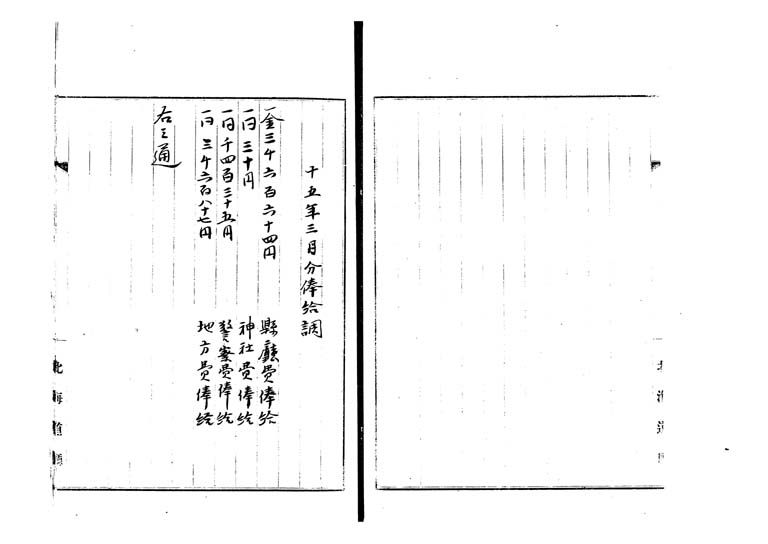 十五年三月分俸給調
一金三千六百六十四円 縣廳費俸給
一同三十円 神社費俸給
一同千四百三十五円 警察費俸給
一同三千六百八十七円 地方費俸給
右之通
北海道